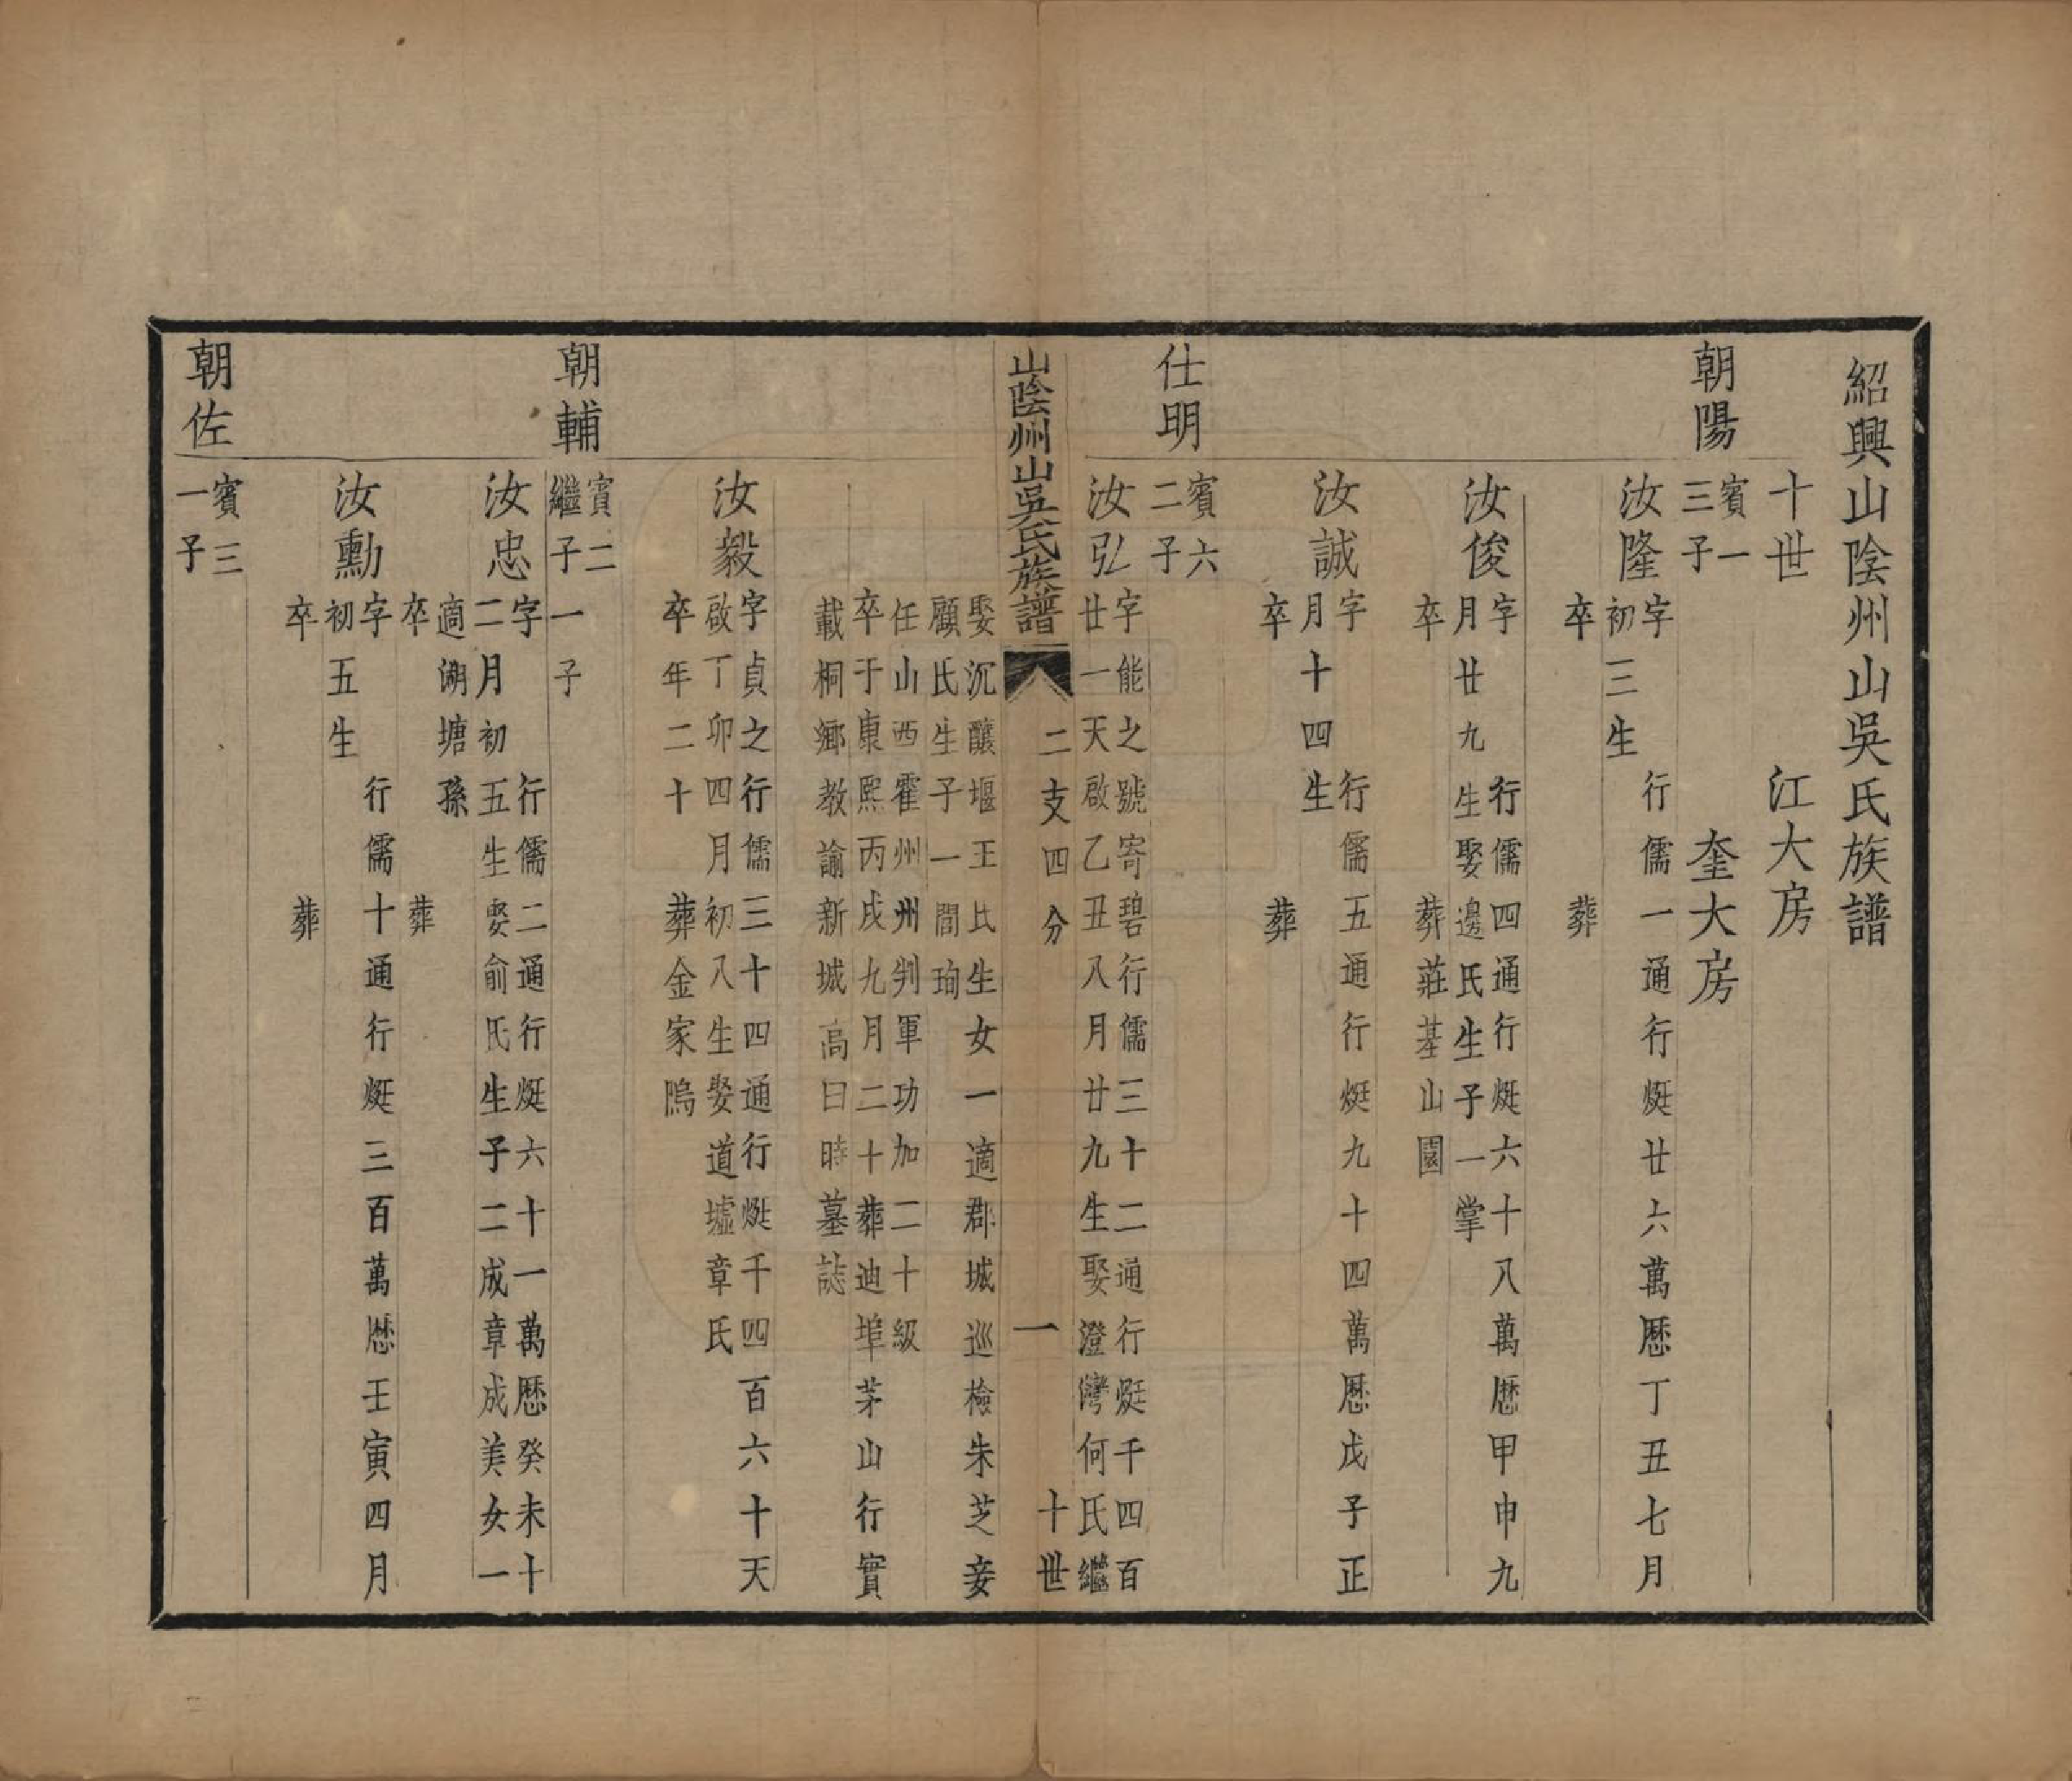 紹興山陰州山吳氏族譜
十世
江大房
奎大房
朝陽
賓一
三子
汝隆
字　行儒一通行烻廿六萬歷丁丑七月
初三生
卒　葬
汝俊
字　行儒四通行烻六十八萬歷甲申九
月廿九生娶邊氏生子一掌
卒　葬莊基山園
汝誠
字　行儒五通行烻九十四萬歷戊子正
月十四生
卒　葬
仕明
賓六
二子
汝弘
字能之號寄碧行儒三十二通行烻千四百
廿一天啟乙丑八月廿九生娶澄灣何氏繼
山陰州山吳氏族譜
二支四分
一
十世
娶沉釀堰王氏生女一適郡城巡檢朱芝妾
顧氏生子一間珣
任山西霍州州判軍功加二十級
卒于康熙丙戌九月二十葬迪埠茅山行實
載桐鄉教諭新城高曰時墓誌
汝毅
字貞之行儒三十四通行烻千四百六十天
啟丁卯四月初八生娶道墟章氏
卒年二十　葬金家塢
朝輔
賓二
繼子一子
汝忠
字　行儒二通行烻六十一萬歷癸未十
二月初五生娶俞氏生子二成章成美女一
適湖塘孫
卒　葬
汝勳
字　行儒十通行烻三百萬歷壬寅四月
初五生
卒　葬
朝佐
賓三
一子